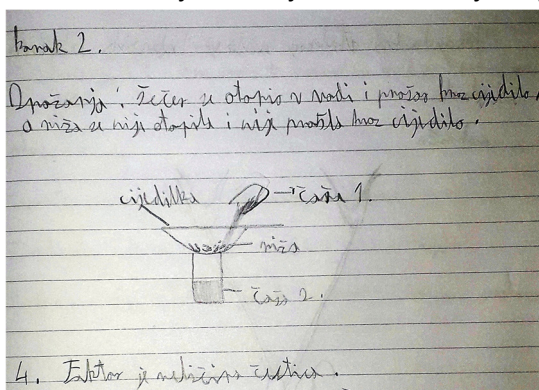 korak 2.
Opažanja: šećer se otopio u vodi i prošao kroz cijedilo,
a riža se nije otopila i nije prošla kroz cijedilo.
cijedilka
čaša 1.
riža
čaša 2.
4. Faktor je veličina čestica.